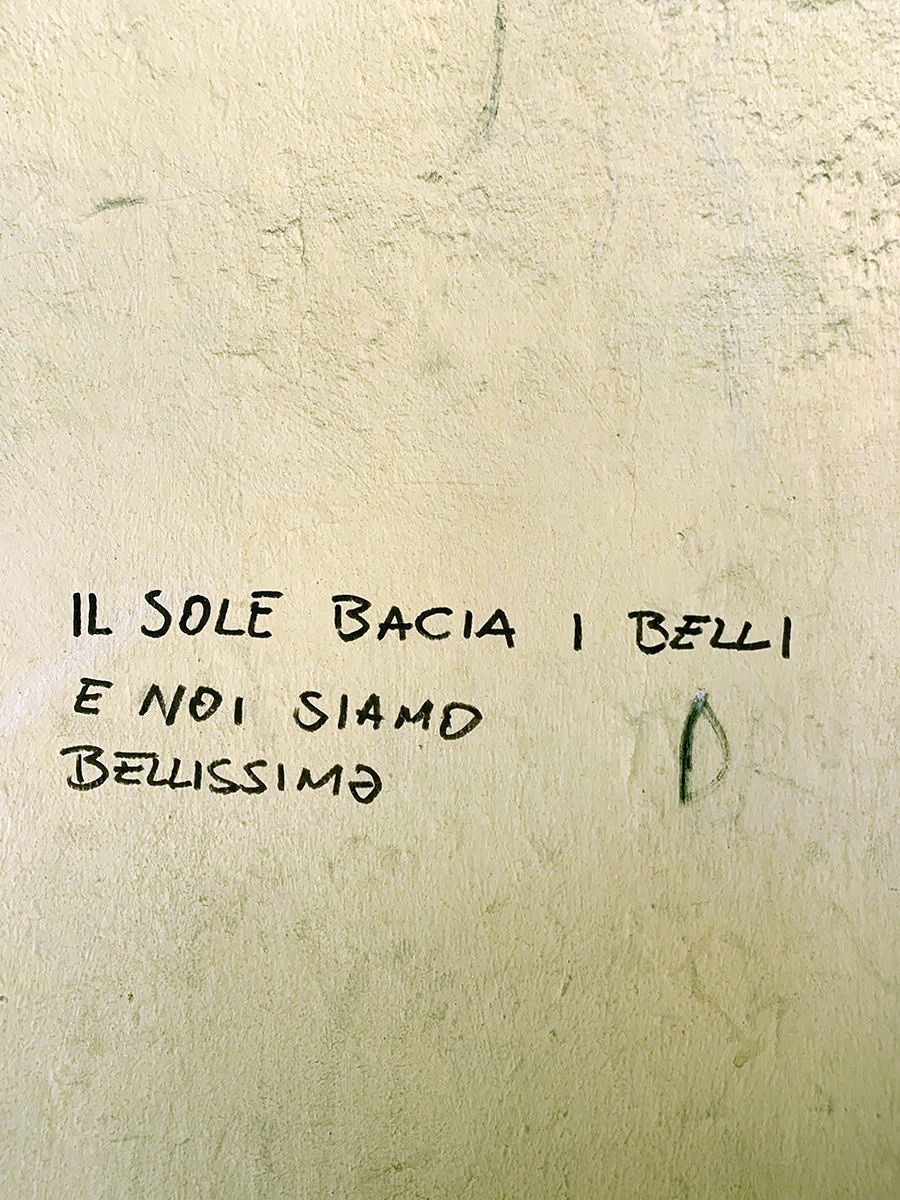 IL SOLE BACIA I BELLI
E NOI SIAMO
BELLISSIMƏ